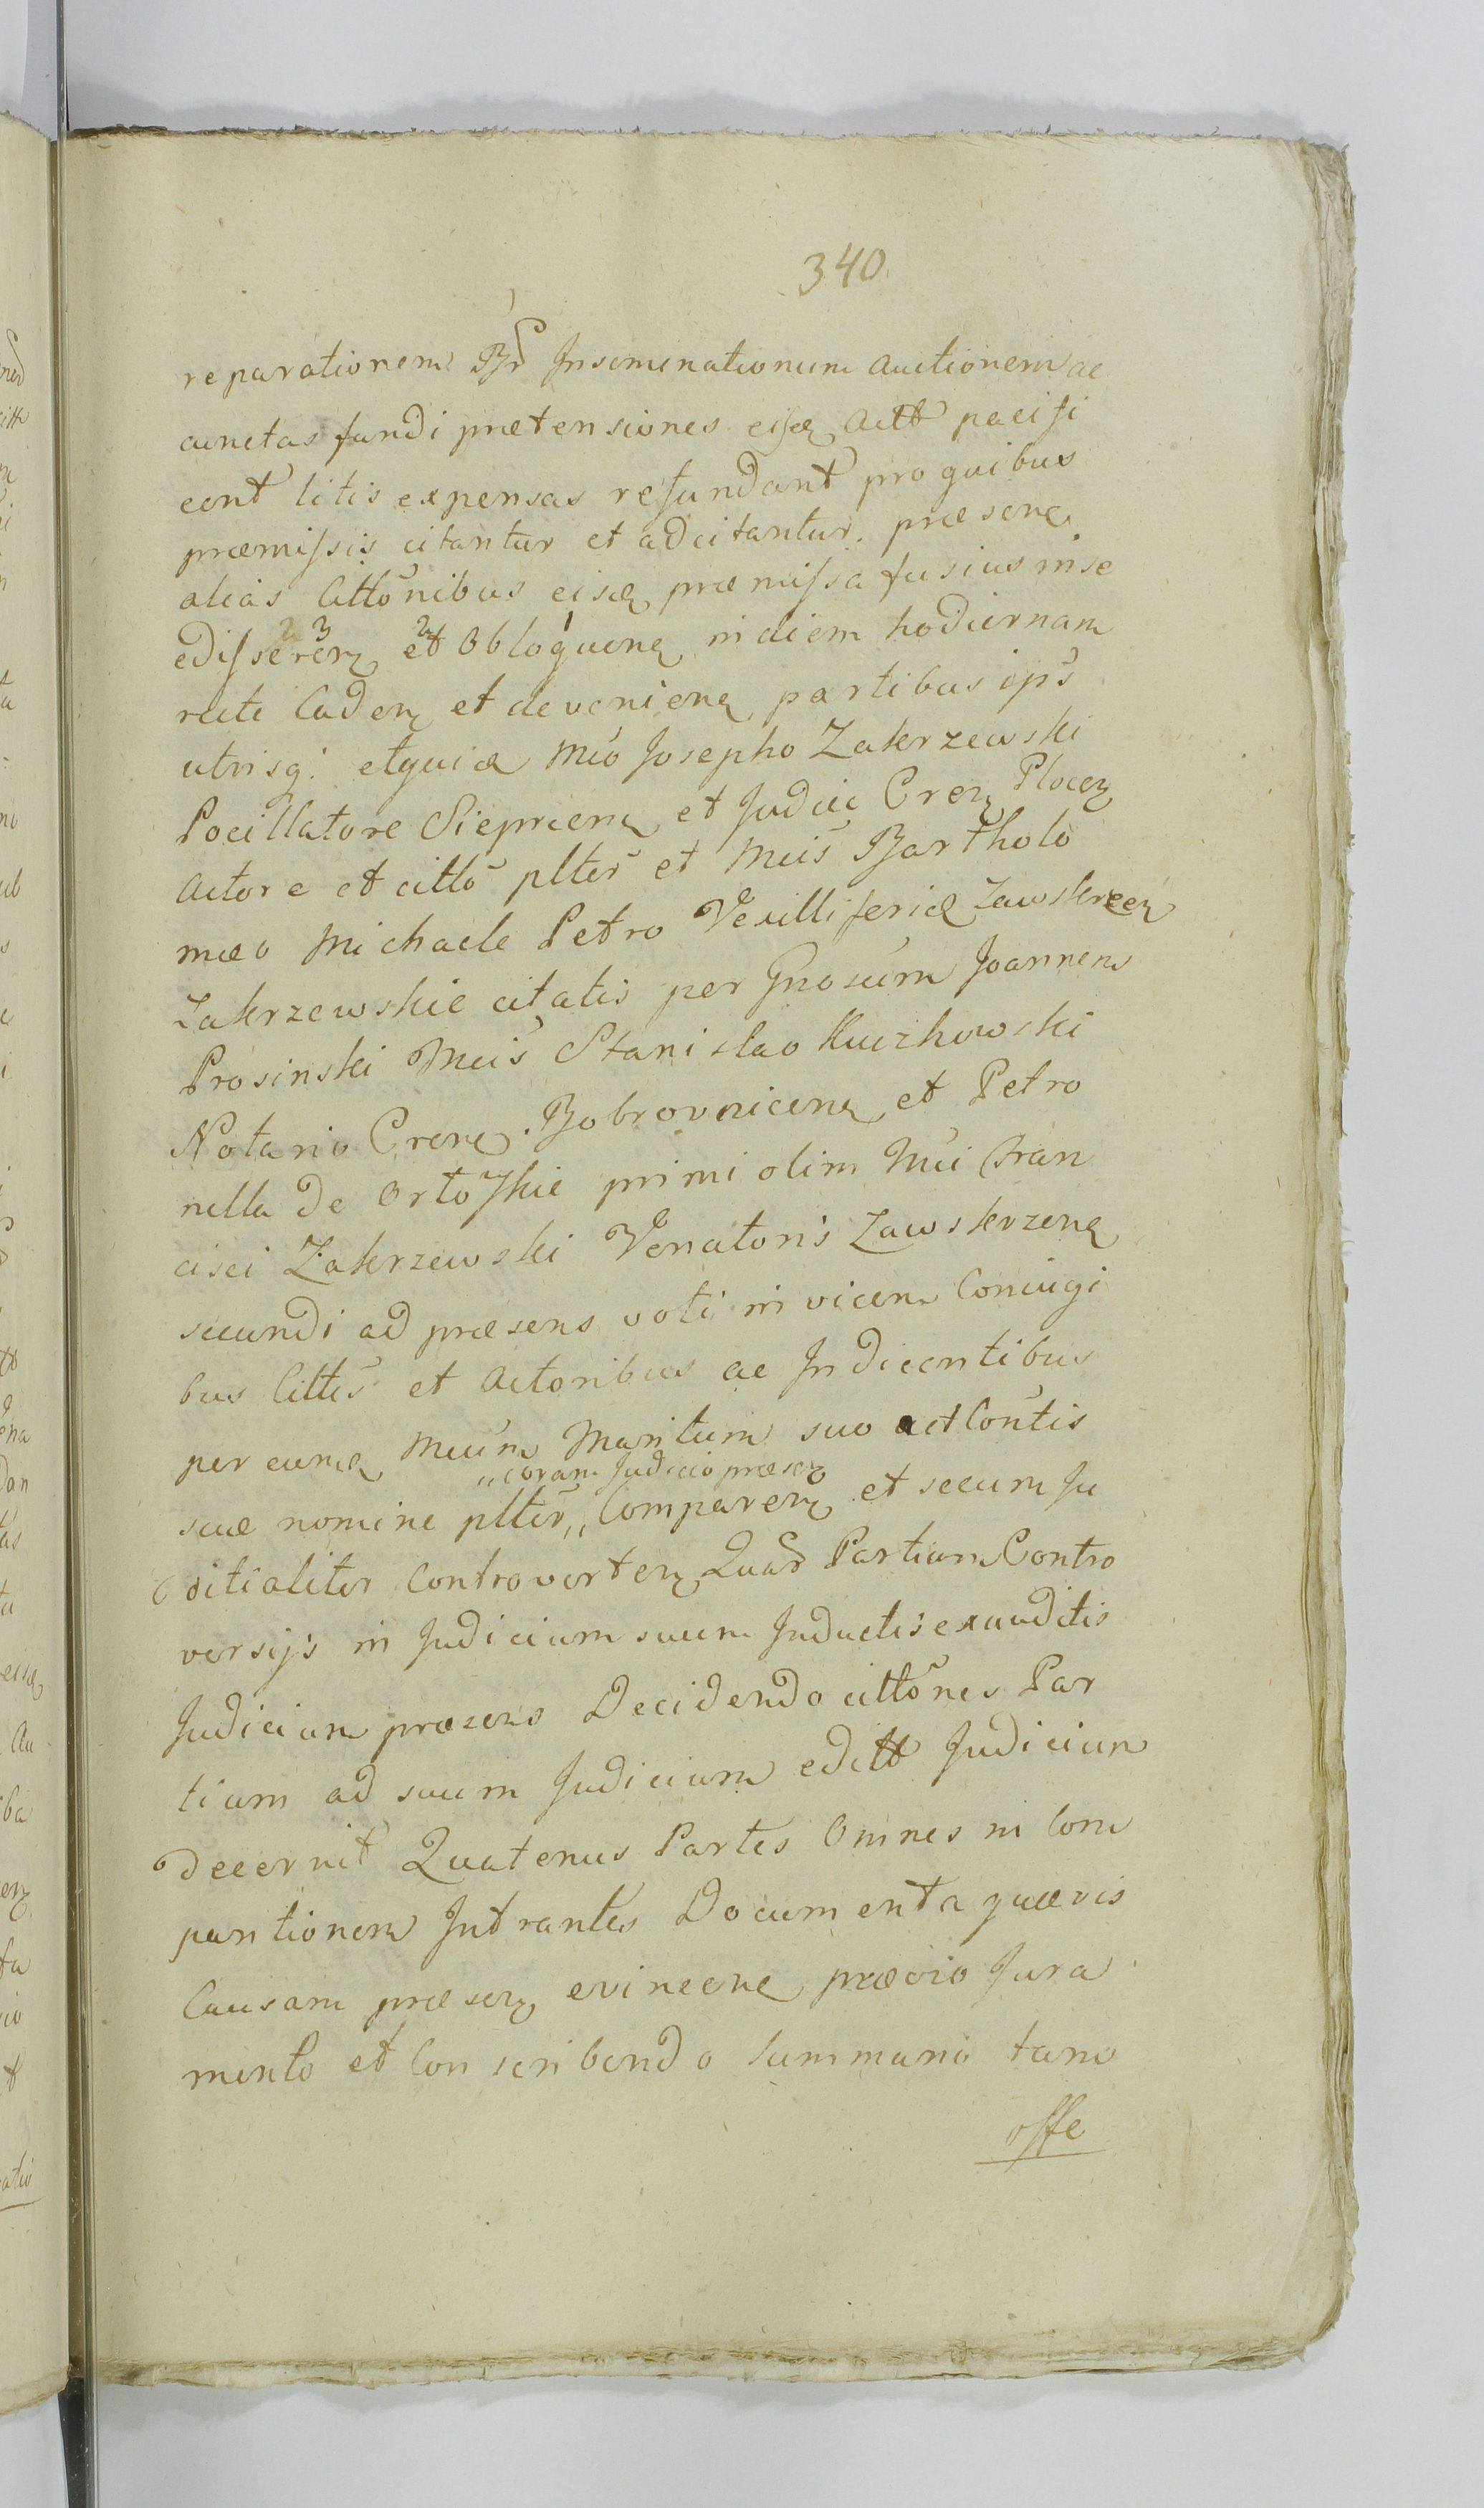 340.
reparationem Br Inseminationum auctionem ac
cunctas fundi praetensiones eisđ Actt pacifi
cent litis expensas refundant pro quibus
praemissis citantur et adcitantur. praesenę
alias Cittōnibus eisđ praemissa fusius in se
edisserenę et obloquenę in diem hodiernam
recte Cadenę et devenienę partibus ips
utrisq: et quia Mco Josepho Zakrzewski
Pocillatore Siepraenę et Judic Crenę Plocenę
Actore et citto plter et Mcis Bartholo
maeo Michaele Petro Vexilliferidę Zawskrzenę
Zakrzewskie citatis per Gnosum Joannem
Prosinski Mcis Stanislao Kuczkowski
Notario Crenę. Bobrovnicenę et Petro
nella de Ortoskie primi olim Mci Fran
cisci Zakrzewski Venatoris Zawskrzenę
secundi ad praesens voti invicem Coniugi
bus Cittis et Actoribus ac Indicentibus
per eumđ Mcum Maritum suo et Contis
suae nomine plter „ Comparenę et secum Ju
„ coram Judicio praesenę
ditialiter Controvertenę Quar Partium Contro
versijs in Judicium suum Inductis exauditis
Judicium praesens Decidendo cittōnes Par
tium ad suum Judicium editt Judicium
Decernit Quatenus Partes Omnes in Com
paritionem Intrantes Documenta quaevis
Causam praesenę evincenę praevio Jura
mento et Conscribendo Summario tam
offe